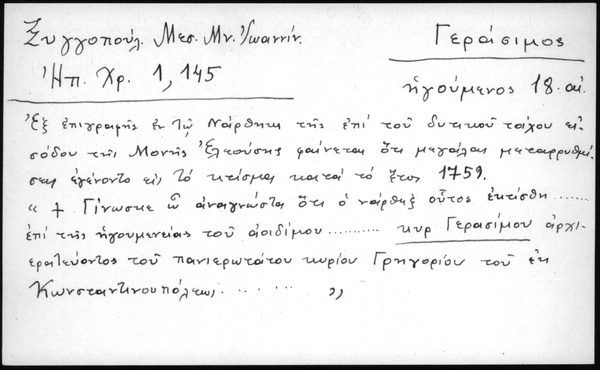 Ξυγγοπούλ. Μεσ. Μν. Ἰωαννίν.
Γεράσιμος
Ἠπ. Χρ. 1, 145
ἡγούμενος 18. αἰ.
Ἐξ ἐπιγραφῆς ἐν τῷ νάρθηκι τῆς ἐπί τοῦ δυτικοῦ τοίχου εἰ-
σόδου τῆς Μονῆς Ἐλεούσης φαίνεται ὅτι μεγάλαι μεταρρυθμί-
σεις ἐγένοντο εἰς τό κτίσμα κατά τό ἔτος 1759.
" + Γίνωσκε ὦ ἀναγνώστα ὅτι ὁ νάρθηξ οὗτος ἐκτίσθη........
ἐπί τῆς ἡγουμενείας τοῦ ἀοιδίμου .......... κυρ Γερασίμου ἀρχι-
ερατεύοντος τοῦ πανιερωτάτου κυρίου Γρηγορίου τοῦ ἐκ
Κωνσταντινουπόλεως. . . . . . . "